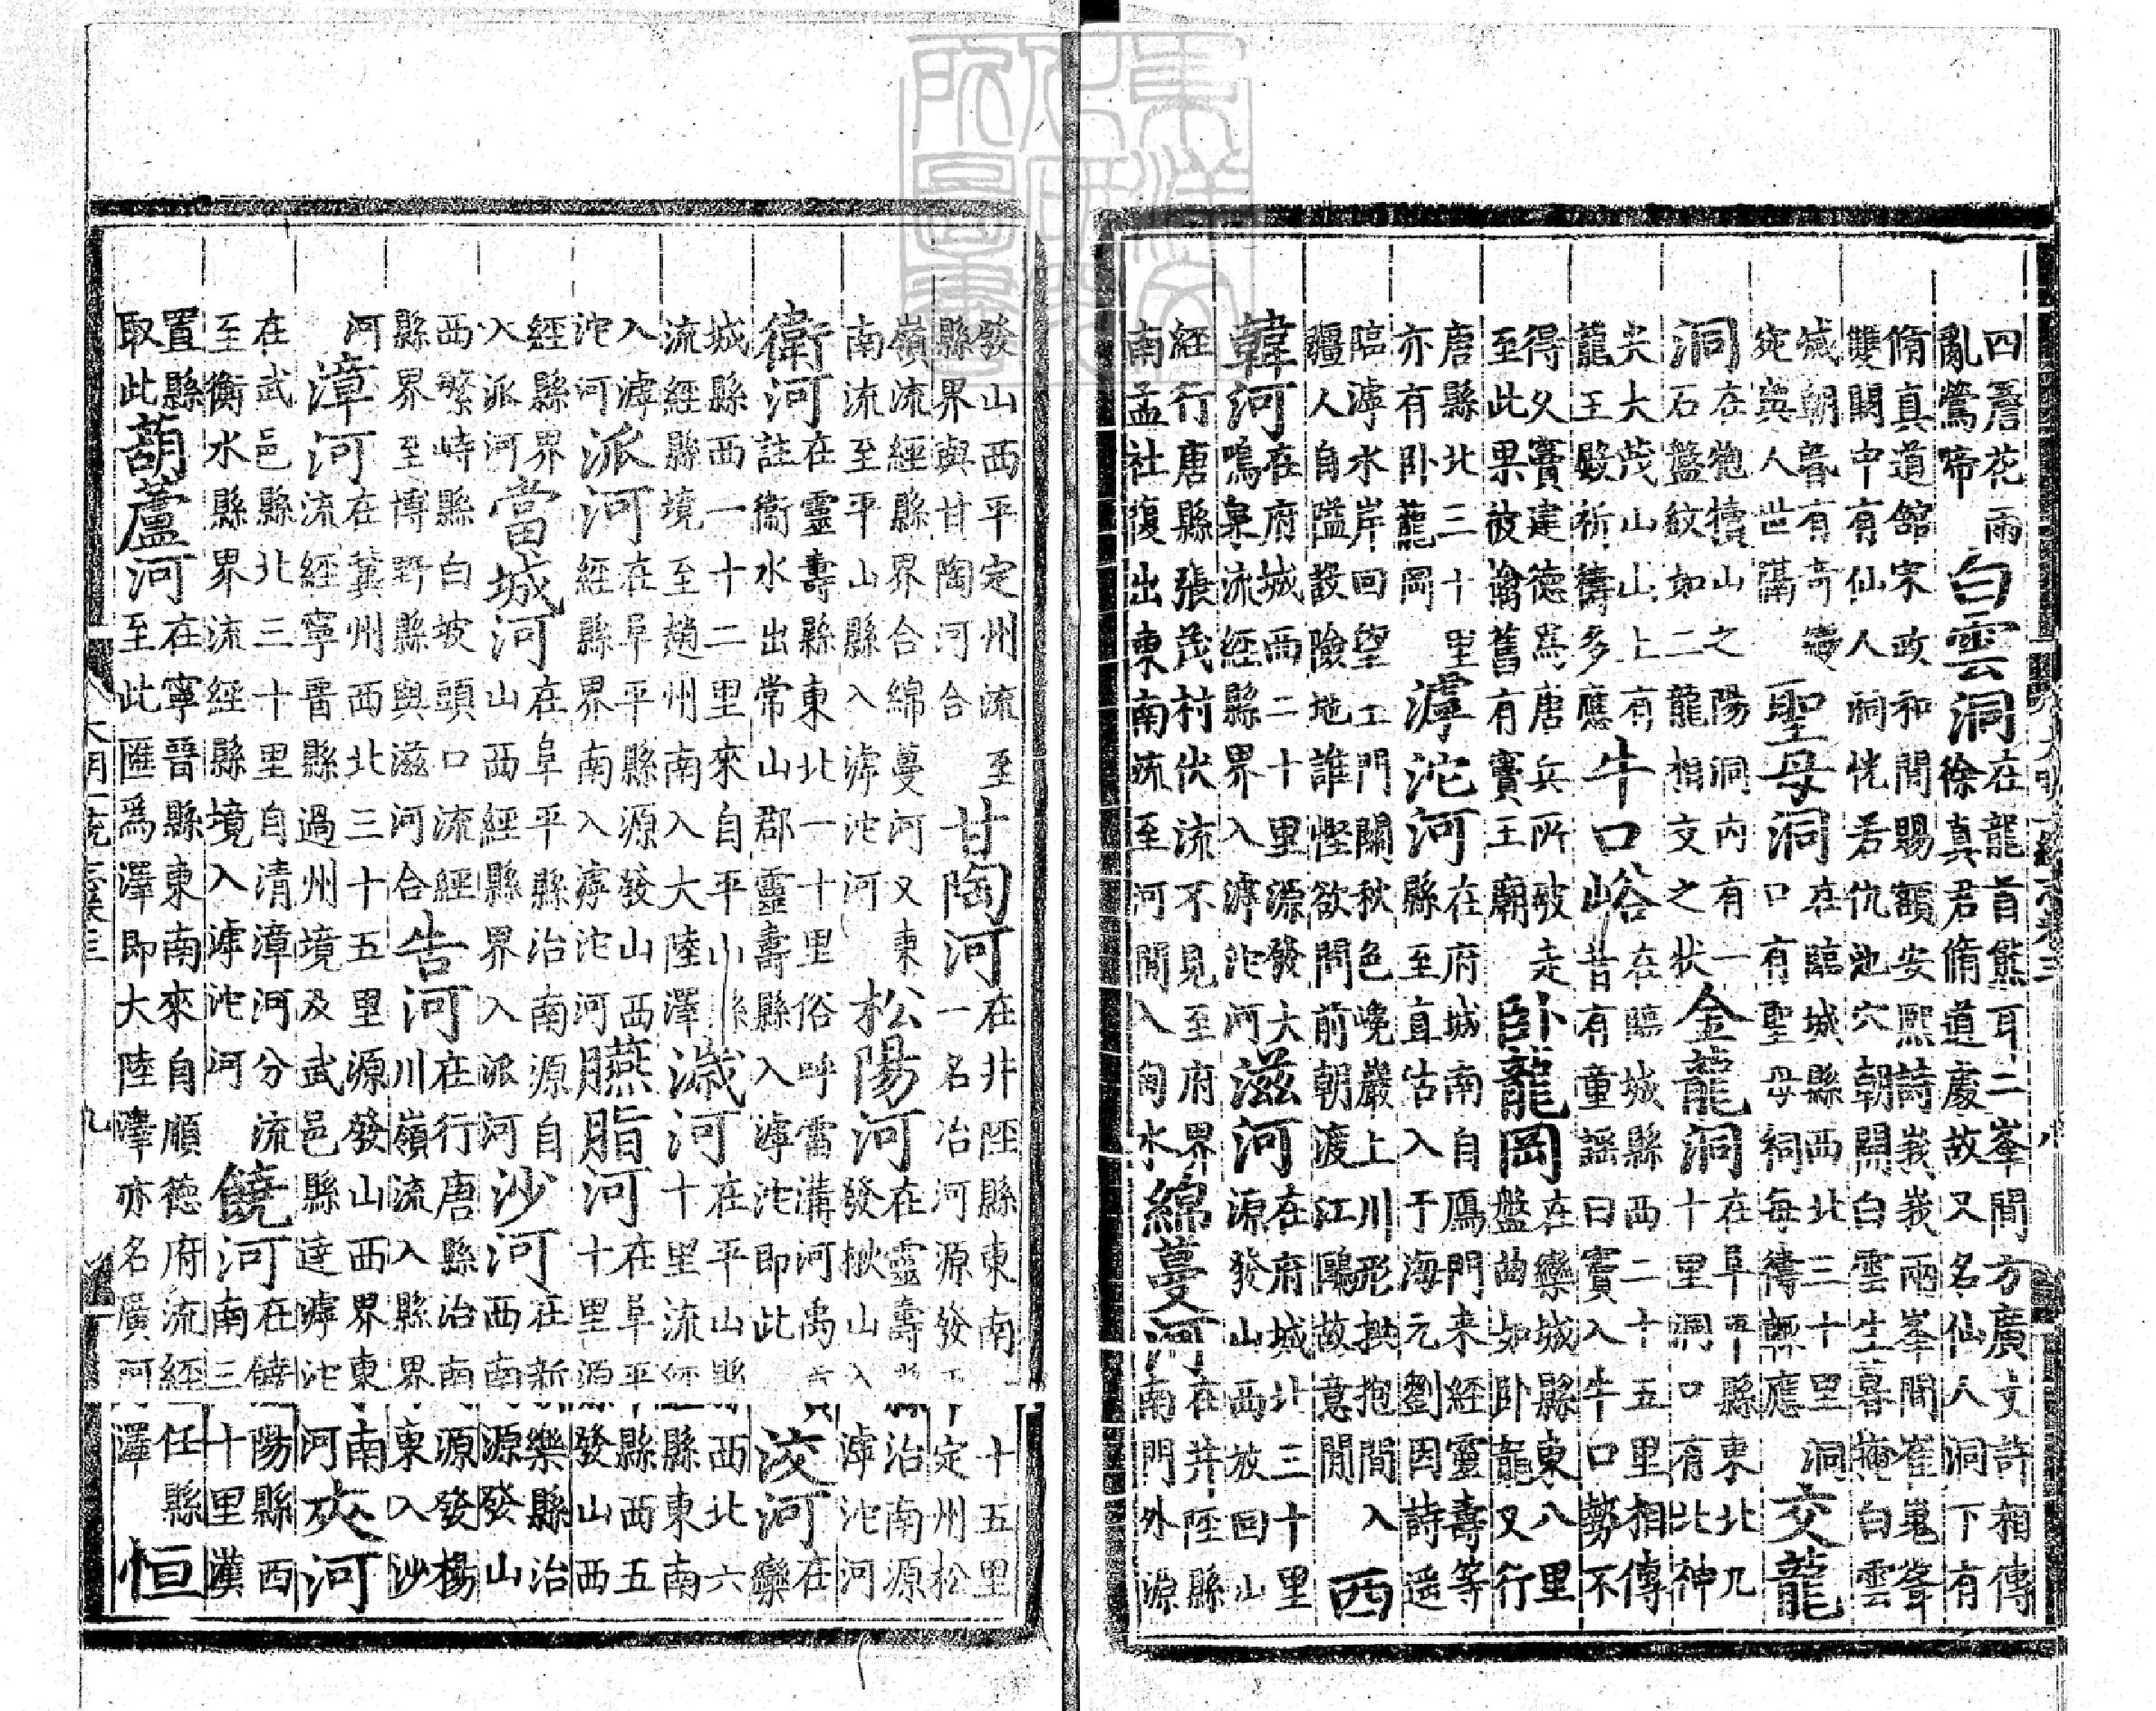 四簷花雨
亂鶯啼
白雲洞
在龍首熊耳二峯間方廣丈許相傳
徐真君脩道處故又名仙人洞下有
脩真道館宋政和間賜額安熙詩峩峩兩峯間崔嵬聳
雙闕中有仙人洞恍若仇池穴朝開白雲生暮掩白雲
滅朝暮有奇變
宛與人世隔
聖母洞
在臨城縣西北三十里洞
口有聖母祠每禱輒應
交龍
洞
在犢山之陽洞内有一
石盤紋如二龍相交之状
金龍洞
在阜平縣東北几
十里洞口有北神
尖大茂山山上有
龍王殿祈禱多應
牛口峪
在臨城縣西二十五里相傳
昔有童謡曰竇入牛口勢不
得久竇建德為唐兵所破走
至此果被擒舊有竇王廟
卧龍岡
在欒城縣東八里
盤曲如卧龍又行
唐縣北三十里
亦有卧龍岡
滹沱河
在府城南自鴈門来經靈壽等
縣至直沽入于海元劉因詩遥
臨滹水岸回望土門關秋色晚巖上川形拱抱間入
疆人自隘設險地誰慳欲問前朝渡江鷗故意閒
西
韓河
在府城西二十里源發大
鳴泉流經縣界入滹沱河
滋河
在府城北三十里
源發山西枚回山
經行唐縣張茂村伏流不見至府界
南孟社復出東南流至河間入向水
綿蔓河
在井陘縣
南門外源
大明一統志卷三
八
發山西平定州流至
縣界與甘陶河合
甘陶河
在井陘縣東南一十五里
一名冶河源發平定州松
嶺流經縣界合綿蔓河又東
南流至平山縣入滹沱河
松陽河
在靈壽縣治南源
發楸山入滹沱河
衛河
在靈壽縣東北一十里俗呼雷溝河禹貢
註衞水出常山郡靈壽縣入滹沱即此
洨河
在
欒
城縣西一十二里來自平山縣
流經縣境至趙州南入大陸澤
濊河
在平山縣西北六
十里流經縣東南
入滹
沱河
派河
在阜平縣源發山西
經縣界南入滹沱河
臙脂河
在阜平縣西五
十里源發山西
經縣界
入派河
當城河
在阜平縣治南源自
山西經縣界入派河
沙河
在新樂縣治
西南源發山
西繁峙縣白坡頭口流經
縣界至博野縣與滋河合
告河
在行唐縣治南源發楊
川嶺流入縣界東入沙
河
漳河
在冀州西北三十五里源發山西界東南
流經寧晋縣過州境及武邑縣達滹沱河
夾河
在武邑縣北三十里自清漳河分流
至衡水縣界流經縣境入滹沱河
饒河
在饒陽縣西
南三十里漢
置縣
取此
葫蘆河
在寧晋縣東南來自順德府流經任縣
至此匯爲澤即大陸澤亦名廣河澤
恒
大明一統志卷三
九